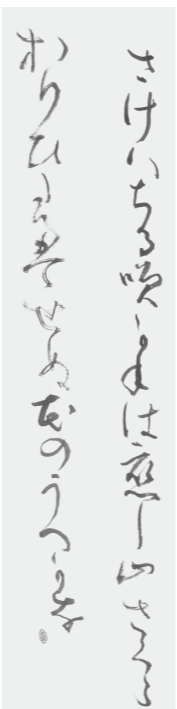 さけハちる咲かねは恋し山さくら
おもひたえせぬ花のうへかな